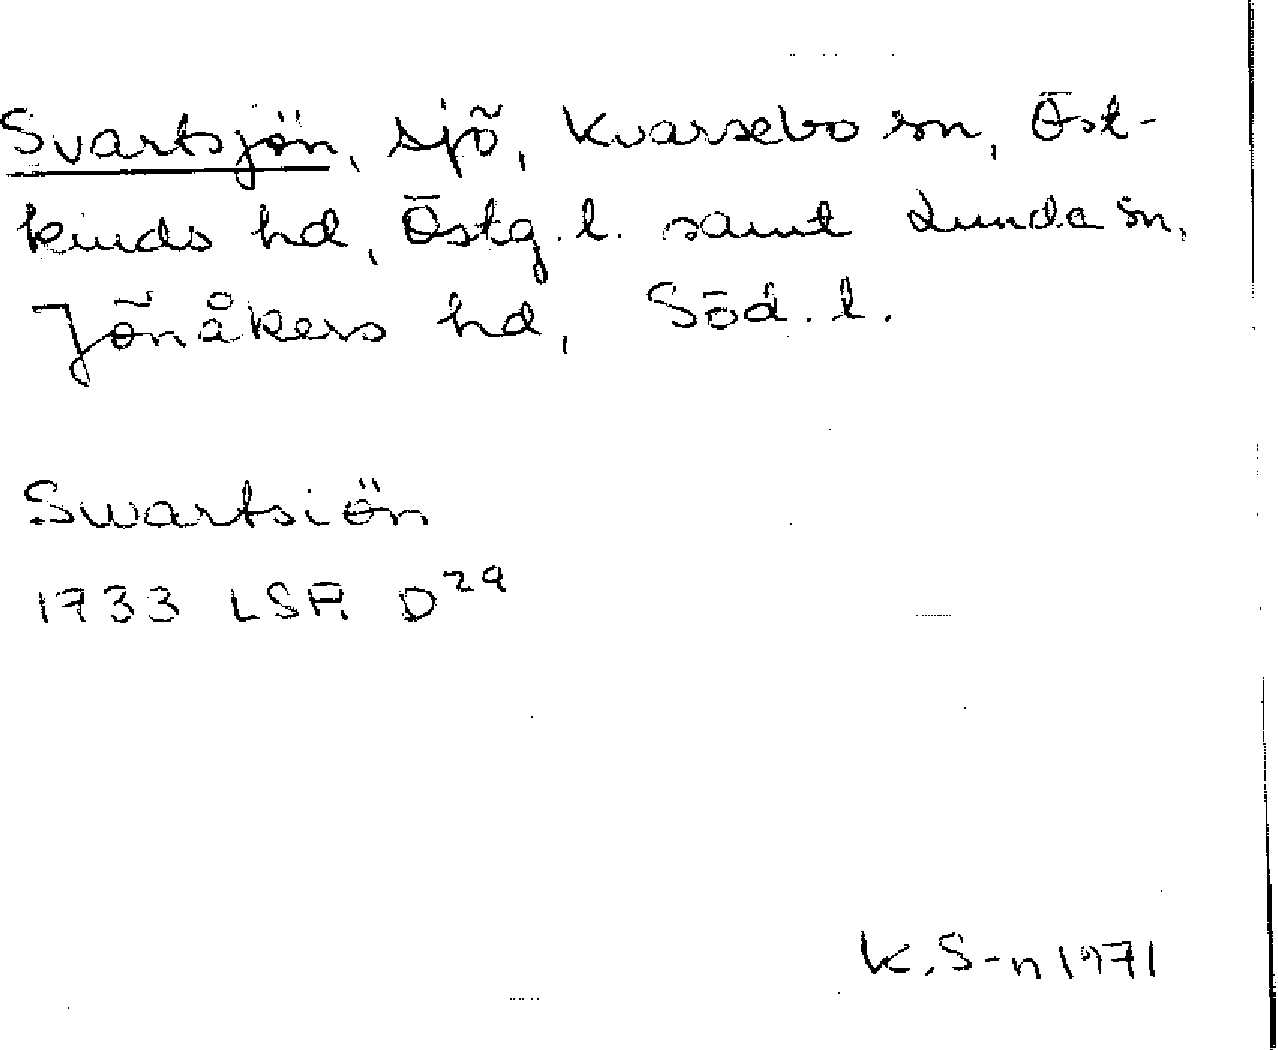 Svartsjön, sjö, Kvarsebo sn, Öst-
kinds hd, Östg. l. samt Lunda sn,
Jönåkers hd, Söd. l.
Swartsiön
1733 LSA D²⁹
K. S-n 1971